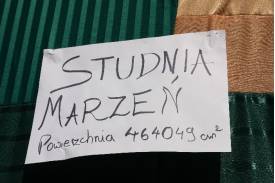 STUDNIA
MARZEŃ
Powierzchnia 464049 cm²